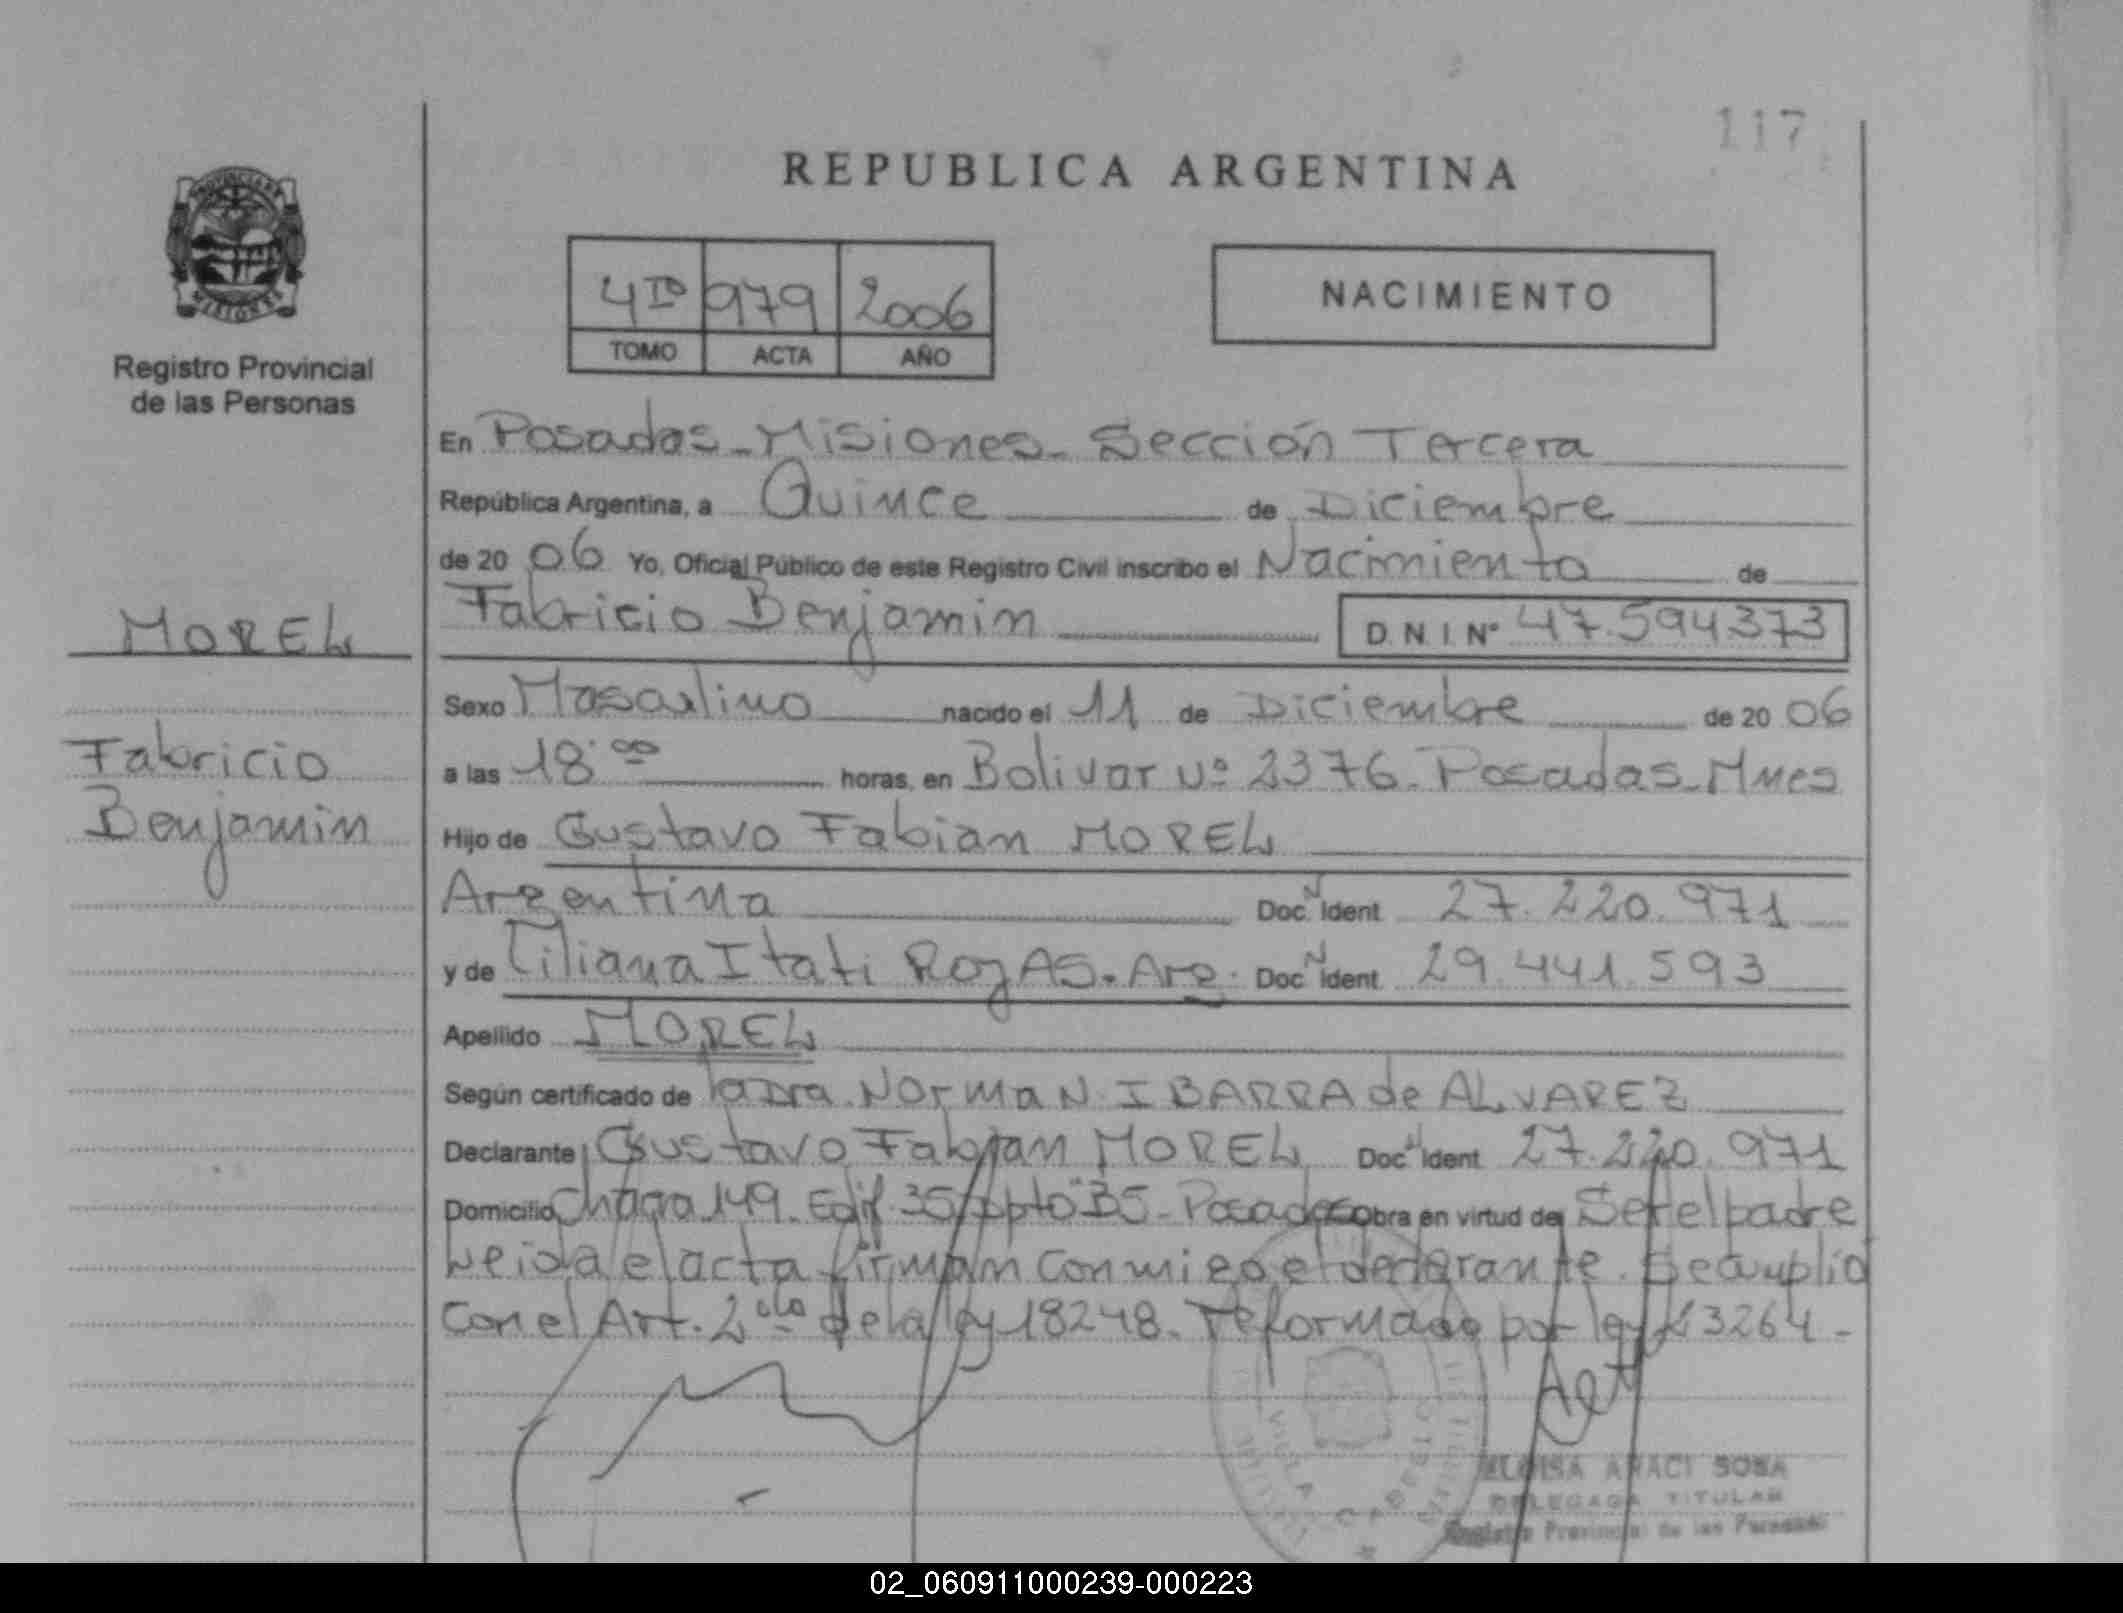 117
REPUBLICA ARGENTINA
PROVINCIA DE
MISIONES
Registro Provincial
de las Personas
4to 979 2006
TOMO ACTA AÑO
NACIMIENTO
En Posadas - Misiones - Sección Tercera
República Argentina, a Quince de Diciembre
de 20 06 Yo, Oficial Público de este Registro Civil inscribo el Nacimiento de
Fabricio Benjamin D.N.I. Nº 47.594373
MOREL
Sexo Masculino nacido el 11 de Diciembre de 20 06
Fabricio
Benjamin
a las 18:00 horas, en Bolivar Nº 2376. Posadas - Mnes
Hijo de Gustavo Fabian MOREL
Argentina Doc. N Ident 27.220.971
y de Liliana Itati ROJAS. Arg. Doc. N Ident 29.441.593
Apellido MOREL
Según certificado de la Dra. Norma N. IBARRA de ALVAREZ
Declarante Gustavo Fabian MOREL Doc N Ident 27.220.971
Domicilio Chacra 149. Edif. 35 Dpto B5 - Posadas obra en virtud de Ser el padre
Leida el acta firman conmigo el declarante. Se cumplió
con el Art. 2do de la ley 18248. reformado por ley 23264 -
VILLA CABELLO
ELOISA ARACI SOSA
DELEGADA TITULAR
Registro Provincial de las Personas
02_060911000239-000223